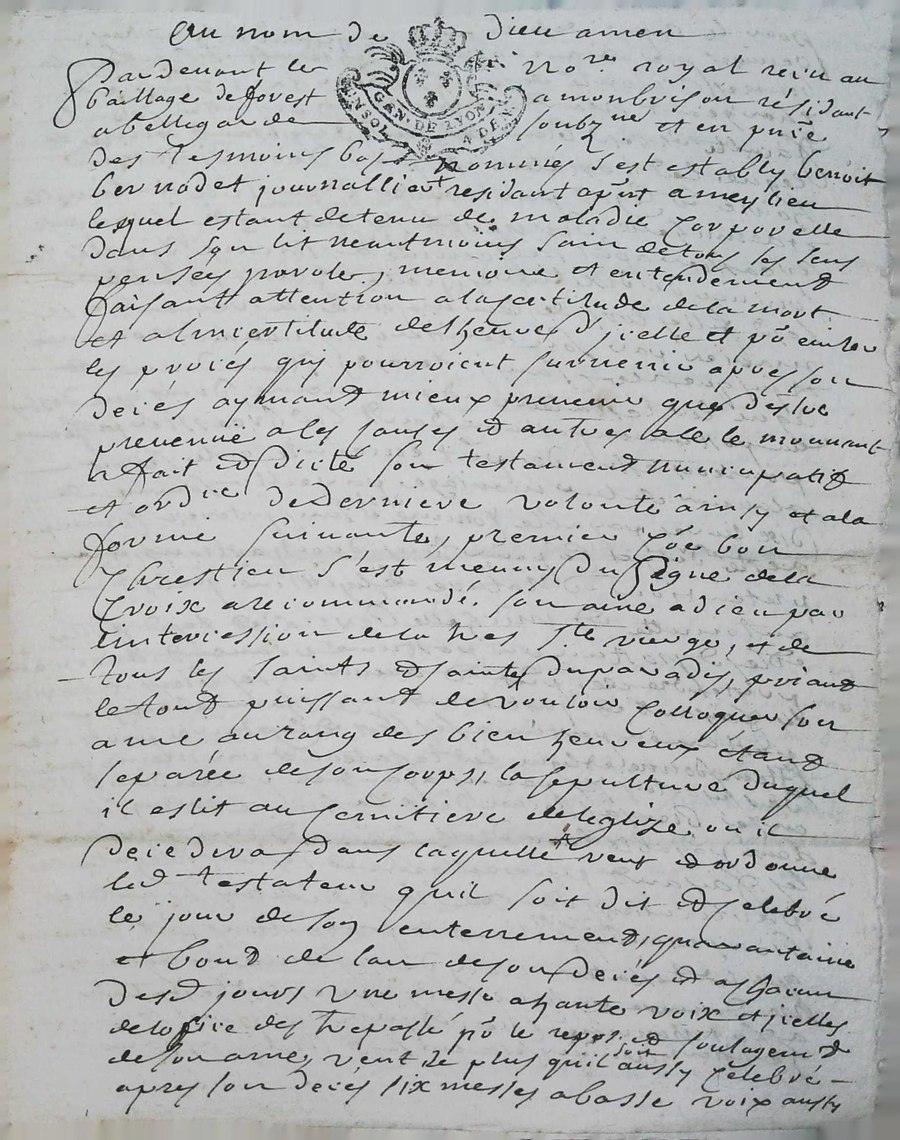 Au nom de Dieu amen
Pardevant le no.re royal receu au
bailliage de forest a monbrison résidant
a bellegarde soubz.né et en pnce
GEN. DE LYON
des tesmoins bas nommés s'est estably benoit
bernadet journallier residant apnt a meylieu
lequel estant detenu de maladie corporelle
dans son lit neantmoins sain de tous ses sens
pensées, parole, memoire et entendement
faisant attention a la certitude de la mort
et a lincertitude de lheure d'jcelle et po eviter
les procés quy pourroient survenir apres son
decés aymant mieux prevenir que destre
prevenu a les causes et autres a ce le mouvant
a fait et dicté son testament nuncupatif
et ordre de derniere volonté ainsy et a la
forme suivante, premier coe bon
Chrestien s'est muny du signe de la
Croix a recommandé son ame a dieu par
lintercession de la tres Ste vierge, et de
tous les saints et saintes du paradis, priant
le tout puissant de vouloir colloquer son
ame au rang des bien heureux étant
separée de son corps, la sepulture duquel
il eslit au cemitiere de leglize ou il
decedera dans laquelle veut et ordonne
led testateur quil soit dit et celebré
le jour de son enterrement, quarantaine
et bout de lan de son decés et a chacun
desd jours une messe a haute voix et jcelles
de lofice des trepassé po le repos et soulagemt
de son ame, veut de plus quil soit aussy celebré
apres son decés six messes a basse voix aussy